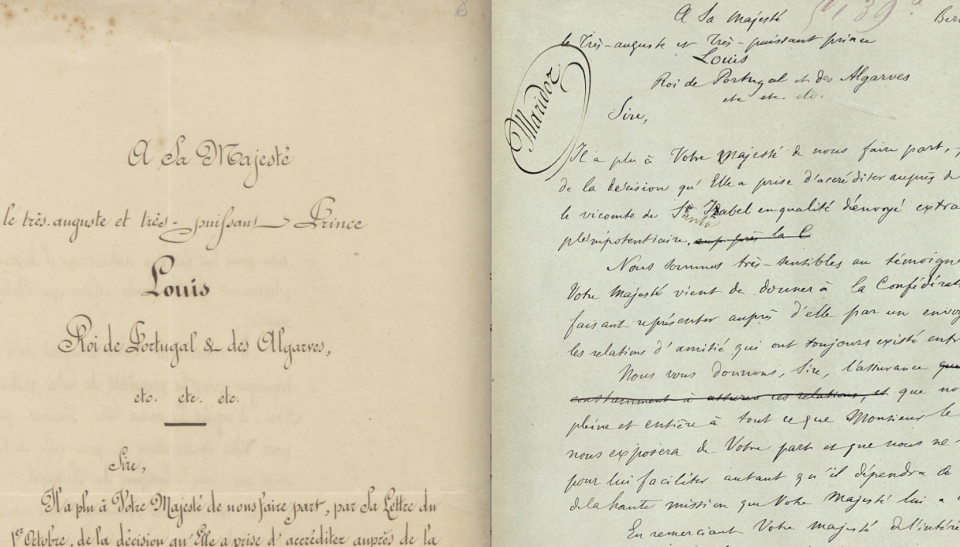 A Sa Majesté
le très-auguste et très-puissant Prince
Louis
Roi de Portugal & des Algarves,
etc. etc. etc.
Sire,
Il a plu à Votre Majesté de nous faire part, par Sa Lettre du
1er Octobre, de la décision qu'Elle a prise d'accréditer auprès de la
A Sa Majesté
le Très-auguste et Très-puissant prince
Louis
Roi de Portugal et des Algarves
etc. etc. etc.
Sire,
Il a plu à Votre Majesté de nous faire part,
de la décision qu'Elle a prise d'accréditer auprès de
le vicomte de Santa Isabel en qualité d'envoyé extra
plénipotentiaire,
Nous sommes très-sensibles au témoigna
Votre Majesté vient de donner à la Confédérat
faisant représenter auprès d'elle par un envoy
les relations d'amitié qui ont toujours existé entr
Nous vous donnons, Sire, l'assurance que
constamment à ces relations, et que no
pleine et entière à tout ce que Monsieur le
nous exposera de Votre part et que nous ne
pour lui faciliter autant qu'il dépendra de
de la haute mission que Votre Majesté lui a
En remerciant Votre Majesté de l'intérê